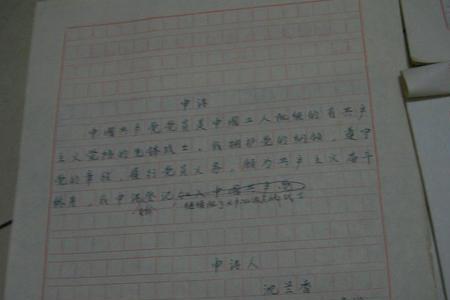 申请
中国共产党党员是中国工人阶级的有共产
主义觉悟的先锋战士。我拥护党的纲领，遵守
党的章程，履行党员义务，愿为共产主义奋斗
终身，我申请登记加入中国共产党
申请人
沈兰香